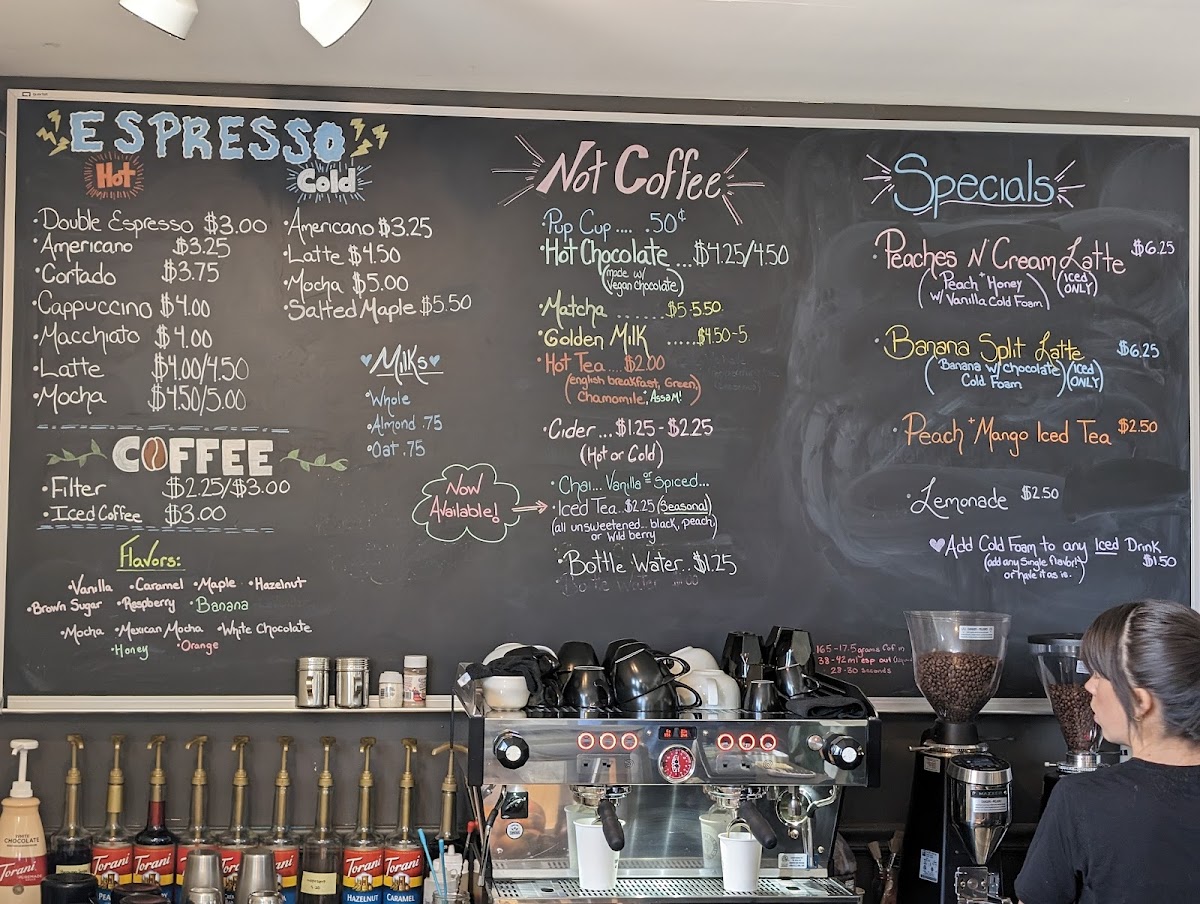 ESPRESSO
Hot
• Double Espresso $3.00
• Americano $3.25
• Cortado $3.75
• Cappuccino $4.00
• Macchiato $4.00
• Latte $4.00/4.50
• Mocha $4.50/5.00
Cold
• Americano $3.25
• Latte $4.50
• Mocha $5.00
• Salted Maple $5.50
Milks
• Whole
• Almond .75
• Oat .75
COFFEE
• Filter $2.25/$3.00
• Iced Coffee $3.00
Flavors:
• Vanilla • Caramel • Maple • Hazelnut
• Brown Sugar • Raspberry • Banana
• Mocha • Mexican Mocha • White Chocolate
• Honey • Orange
Not Coffee
• Pup Cup .... .50¢
• Hot Chocolate ...$4.25/4.50
(made w/
vegan chocolate)
• Matcha ....... $5-5.50
• Golden Milk ......$4.50-5
• Hot Tea....$2.00
(english breakfast, Green,
Chamomile, Assam!
• Cider ... $1.25 - $2.25
(Hot or Cold)
• Chai... Vanilla or Spiced...
Now
Available!
• Iced Tea..$2.25 (Seasonal)
(all unsweetened.. black, peach,
or wild berry
• Bottle Water.. $1.25
Bottle Water
Specials
• Peaches N' Cream Latte $6.25
(Peach + Honey
w/ Vanilla Cold Foam)
(Iced
ONLY)
• Banana Split Latte $6.25
(Banana w/ chocolate
Cold Foam
(Iced
ONLY)
• Peach + Mango Iced Tea $2.50
• Lemonade $2.50
Add Cold Foam to any Iced Drink
$1.50
(add any Single flavor!
or have it as is.)
16.5-17.5 grams Cof in
38-42 ml esp out
28-30 seconds
CHOCOLATE
Torani
Torani
Torani
Torani
Torani
Torani
HAZELNUT
Torani
CARAMEL